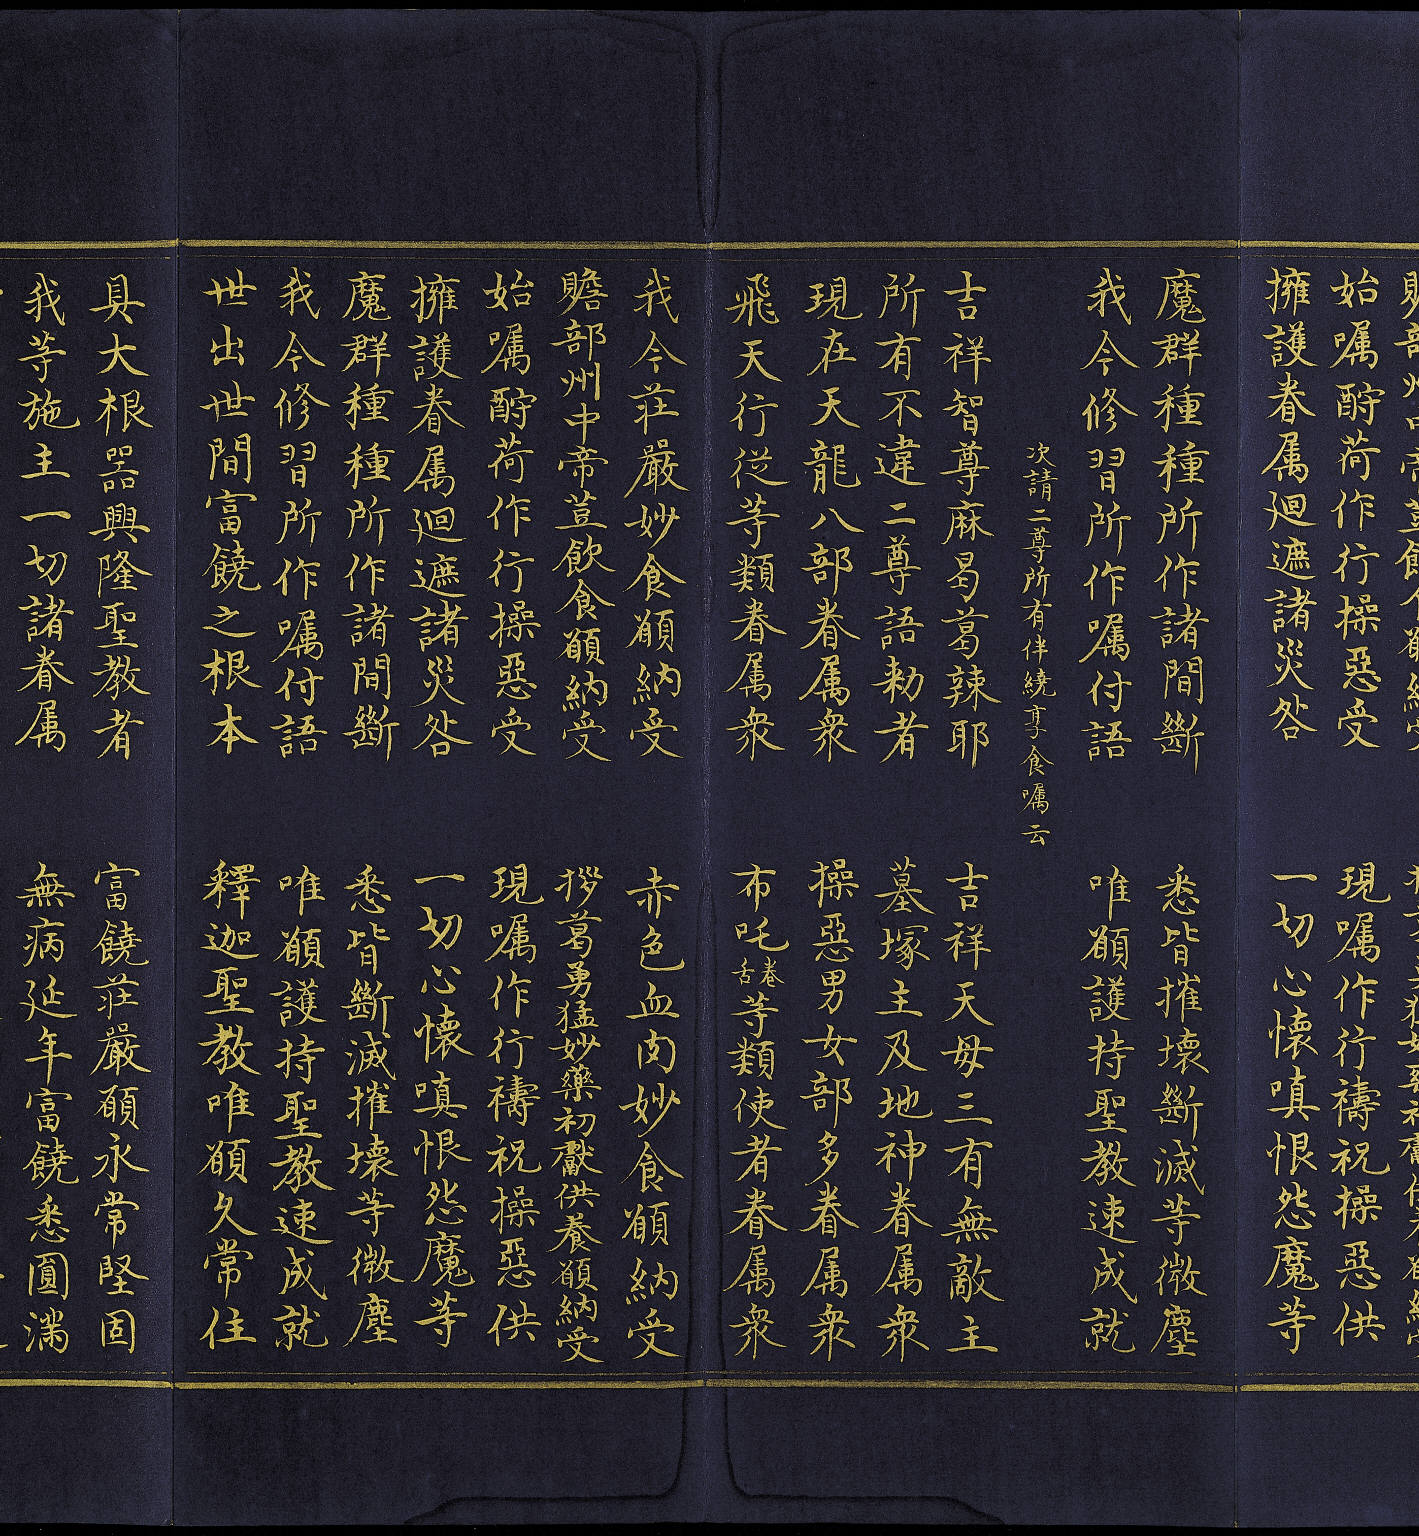 始嘱酧荷作行操惡受　現嘱作行禱祝操惡供
擁護眷属廻遮諸災咎　一切心懷嗔恨怨魔等
魔群種種所作諸間斷　悉皆摧壞斷滅等微塵
我今修習所作嘱付語　唯願護持聖教速成就
次請二尊所有伴繞享食嘱云
吉祥智尊麻曷葛辣耶　吉祥天母三有無敵主
所有不違二尊語勑者　墓塚主及地神眷属衆
現在天龍八部眷属衆　操惡男女部多眷属衆
飛天行從等類眷属衆　布吒卷舌等類使者眷属衆
我今莊嚴妙食願納受　赤色血肉妙食願納受
贍部州中帝荳飲食願納受　拶葛勇猛妙藥初獻供養願納受
始嘱酧荷作行操惡受　現嘱作行禱祝操惡供
擁護眷属廻遮諸災咎　一切心懷嗔恨怨魔等
魔群種種所作諸間斷　悉皆斷滅摧壞等微塵
我今修習所作嘱付語　唯願護持聖教速成就
世出世間富饒之根本　釋迦聖教唯願久常住
具大根器興隆聖教者　富饒莊嚴願永常堅固
我等施主一切諸眷属　無病延年富饒悉圓滿